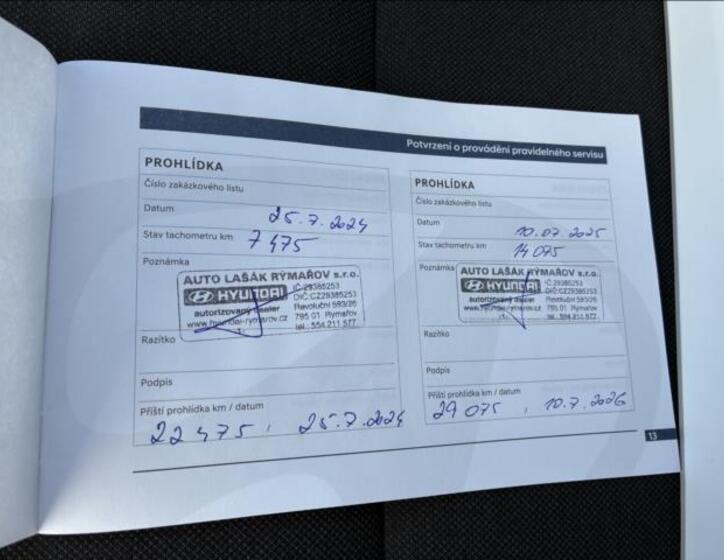 Potvrzení o provádění pravidelného servisu
PROHLÍDKA
Číslo zakázkového listu
Datum 25.7.2024
Stav tachometru km 7475
Poznámka
AUTO LAŠÁK RÝMAŘOV s.r.o.
HYUNDAI
autorizovaný dealer
www.hyundai-rymarov.cz
IČ:29385253
DIČ:CZ29385253
Revoluční 593/26
795 01 Rýmařov
tel.: 554 211 577
Razítko
Podpis
Příští prohlídka km / datum
22475, 25.7.2024
PROHLÍDKA
Číslo zakázkového listu
Datum 10.07.2025
Stav tachometru km 14075
Poznámka
AUTO LAŠÁK RÝMAŘOV s.r.o.
HYUNDAI
autorizovaný dealer
www.hyundai-rymarov.cz
IČ:29385253
DIČ:CZ29385253
Revoluční 593/26
795 01 Rýmařov
tel.: 554 211 577
Razítko
Podpis
Příští prohlídka km / datum
29075, 10.7.2026
13